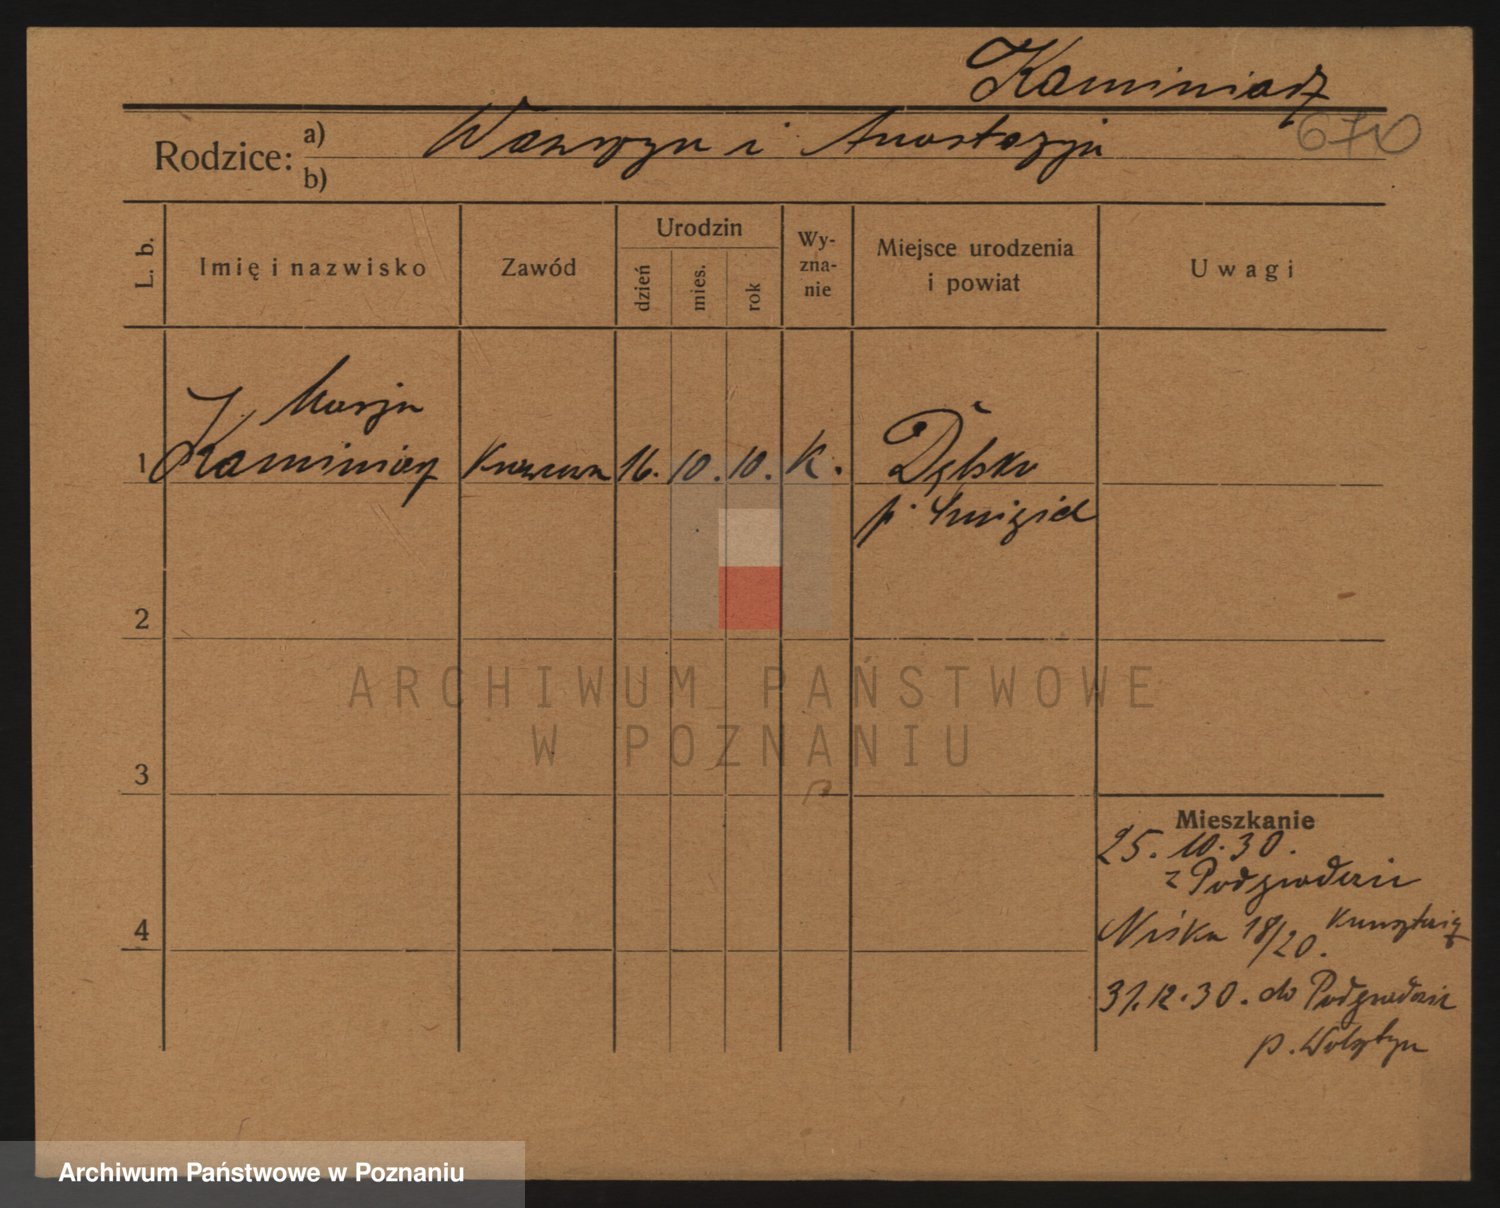 Kaminiarz
670
Rodzice: a) Wawrzyn i Anastazja
b)
L. b. Imię i nazwisko Zawód Urodzin dzień mies. rok Wy-zna-nie Miejsce urodzenia i powiat Uwagi
Marja
1 Kaminiarz Krawcowa 16. 10. 10. K. Dębsko
p. Śmigiel
2
ARCHIWUM PAŃSTWOWE
W POZNANIU
3
Mieszkanie
25. 10. 30.
z Podgradowic
4 18/20.
31.12.30. do Podgradowic
p. Wolsztyn
Archiwum Państwowe w Poznaniu